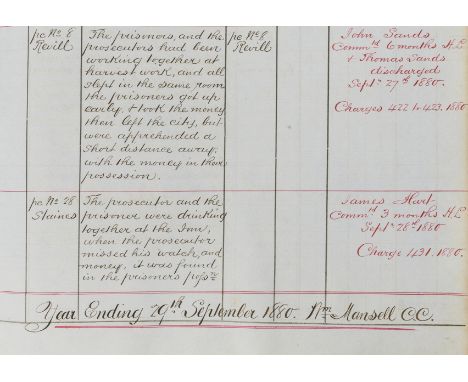 pc No 8
Revill
The prisoners, and the
prosecutors had been
working together at
harvest work, and all
slept in the same room
the prisoners got up
early & took the money
then left the city, but
were apprehended a
short distance away,
with the money in their
possession.
pc No 8
Revill
John Sands
Commd 6 months H.L
& Thomas Sands
discharged
Sept. 27th 1880.
Charges 422 to 423. 1880
pc No 28
Staines
The prosecutor and the
prisoner were drinking
together at the Inn,
when the prosecutor
missed his watch, and
money, it was found
in the prisoners possn
James Hart
Commd 3 months H.L
Sept. 28th 1880
Charge 431. 1880
Year Ending 29th September 1880. Wm Mansell C.C.